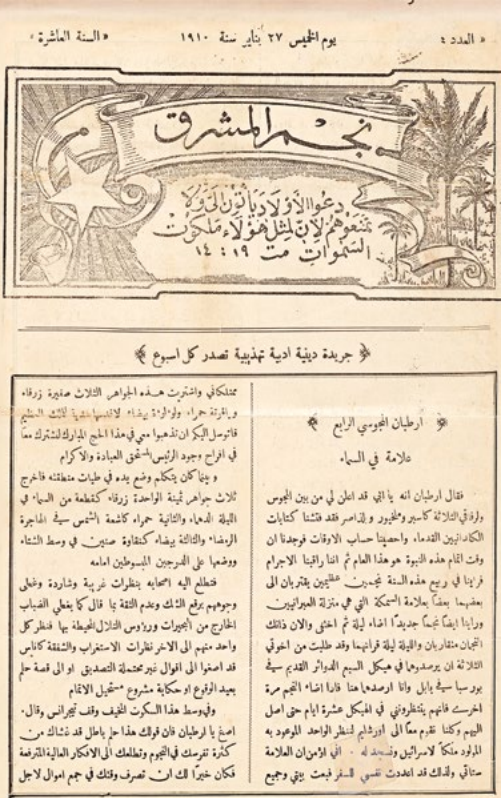 « العدد ٤
يوم الخميس ٢٧ يناير سنة ١٩١٠
« السنة العاشرة »
نجم المشرق
دعوا الأولاد يأتون إلي ولا
تمنعوهم لان لمثل هؤلاء ملكوت
السموات مت ١٩ : ١٤
جريدة دينية ادبية تهذيبية تصدر كل اسبوع
ارطبان المجوسي الرابع
علامة في السماء
فقال ارطبان انه يا ابي قد اعلن لي من بين المجوس
ولرفاقي الثلاثة كاسبر وملخيور وبلذاصر فقد فتشنا كتابات
الكلدانيين القدماء واحصينا حساب الاوقات فوجدنا ان
وقت اتمام هذه النبوة هو هذا العام ثم اننا راقبنا الاجرام
فراينا في ربيع هذه السنة نجمين عظيمين يقتربان الى
بعضهما بعضًا بعلامة السمكة التي هي منزلة العبرانيين
وراينا ايضًا نجمًا جديدًا اضاء ليلة ثم اختفى والان ذانك
النجمان متقاربان والليلة ليلة قرانهما وقد طلبت من اخوتي
الثلاثة ان يرصدوهما في هيكل السبع الدوائر القديم في
بورسبا في بابل وانا ارصدهما هنا فاذا اضاء النجم مرة
اخرى فانهم ينتظروني في الهيكل عشرة ايام حتى اصل
اليهم وكلنا نقوم معًا الى اورشليم لننظر الواحد الموعود به
المولود ملكًا لاسرائيل ونسجد له . اني اؤمن ان العلامة
ستاتي ولذلك قد اعددت نفسي للسفر فبعت بيتي وجميع
ممتلكاتي واشتريت هذه الجواهر الثلاث صفيرة زرقاء
وياقوتة حمراء ولؤلؤة بيضاء لاقدمها هدية لذلك العظيم
فاتوسل اليكم ان تذهبوا معي في هذا الحج المبارك لنشترك معًا
في افراح وجود الرئيس المستحق العبادة والاكرام
وبينما كان يتكلم وضع يده في طيات منطقته فاخرج
ثلاث جواهر ثمينة الواحدة زرقاء كقطعة من السماء في
الليلة الدهماء والثانية حمراء كاشعة الشمس في الهاجرة
الرمضاء والثالثة بيضاء كنقاوة صنين في وسط الشتاء
ووضعها على الدرجين المبسوطين امامه
فتطلع اليه اصحابه بنظرات غريبة وشاردة وغطى
وجوههم برقع الشك وعدم الثقة بما قال كما يغطي الضباب
الخارج من البحيرات ورؤوس التلال المحيطة بها فنظر كل
واحد منهم الى الاخر نظرات الاستغراب والشفقة كاناس
قد اصغوا الى اقوال غير محتملة التصديق او الى قصة حلم
بعيد الوقوع او حكاية مشروع مستحيل الاتمام
وفي وسط هذا السكوت المخيف وقف تيجرانس وقال .
اصغ يا ارطبان فان قولك هذا حلم باطل قد غشاك من
كثرة تفرسك في النجوم وتطلعك الى الافكار العالية المترفعة
فكان خيرًا لك ان تصرف وقتك في جمع اموال لاجل